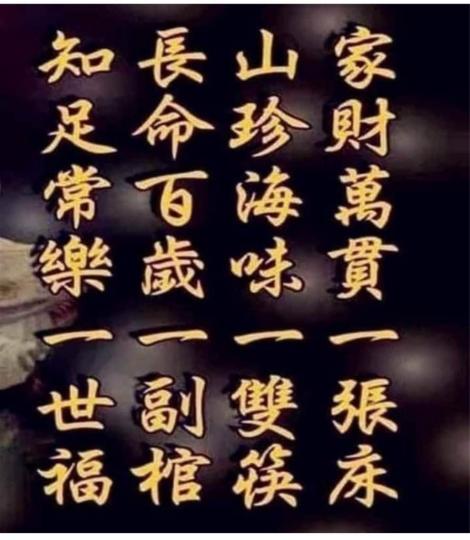 家財萬貫一張床
山珍海味一雙筷
長命百歲一副棺
知足常樂一世福